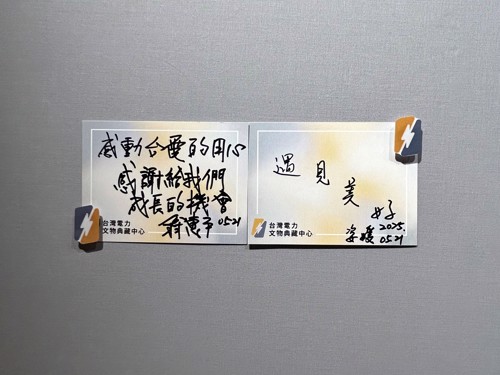 感動台電的用心
感謝給我們
成長的機會
0521
台灣電力
文物典藏中心
遇見美好
2025.
0521
台灣電力
文物典藏中心